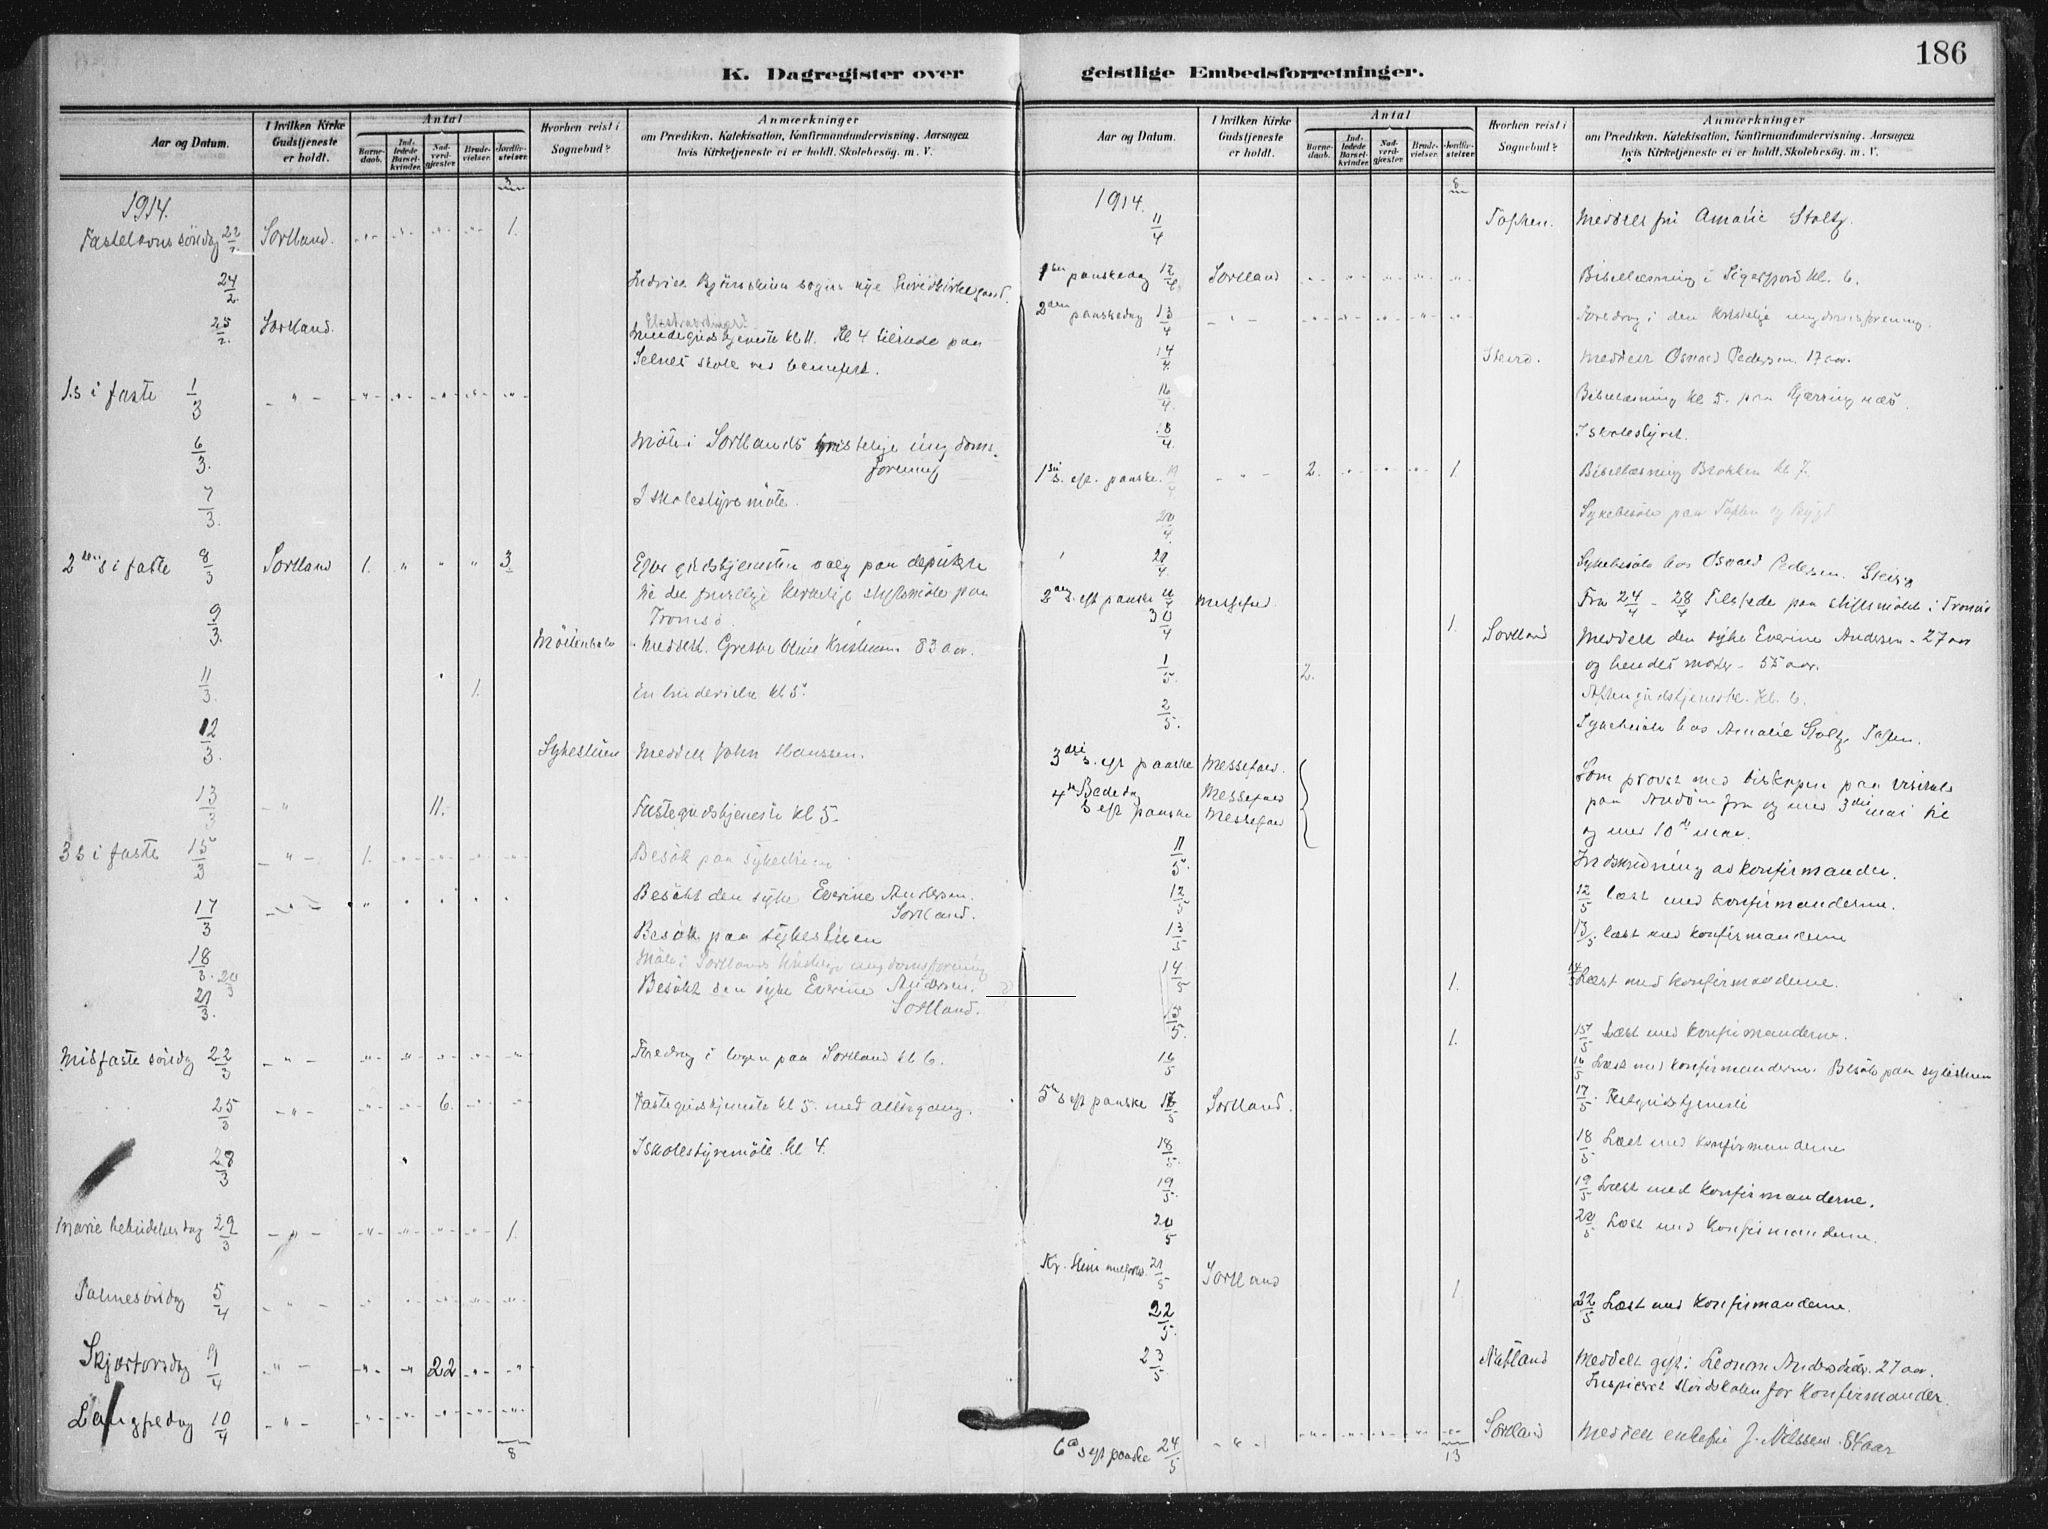 186
K. Dagregister over
Aar og Datum.
I hvilken Kirke Gudstjeneste er holdt.
Antal
Barnedaab.
Indledede Barselkvinder.
Nadverdgjæster.
Brudevielser.
Jordfæstelser.
Hvorhen reist i Sognebud?
Anmærkninger
om Prædiken, Katekisation, Konfirmandundervisning, Aarsagen
hvis Kirketjeneste ei er holdt, Skolebesøg, m. V.
1914.
Fastelavns söndag 22/2 Sortland. 1.
24/2
25/2 Sortland.
Gudstjeneste kl 11. Kl 4 tilstede paa
Selnes skole ved
1.s i faste 1/3
6/3 Möte i Sortlands kristelige ungdoms-
forening
7/3 I skolestyremöte.
2den s i faste 8/3 Sortland 1. 3. Efter gudstjenesten valg paa
til det frivillige kirkelige stiftsmöte paa
Tromsö
9/3 Meddelt Grethe Oline Kristensen 83 aar.
11/3 1. En brudevielse kl 5.
12/3 Sykestuen Meddelt John Hanssen.
13/3 11. Fastegudstjeneste kl 5.
3 s i faste 15/3 1. Besök paa sykestuen
17/3 Besökt den syke Everine Andersen.
Sortland.
18/3. Besök paa sykestuen
20/3 Möte i Sortlands kristelige ungdomsforening
21/3. Besökt den syke Everine Andersen.
Sortland.
Midfaste söndag 22/3 Foredrag i logen paa Sortland kl 6.
25/3 6. Fastegudstjeneste kl 5. med altergang.
28/3 I skolestyremöte kl 4.
Marie bebudelses dag 29/3 1.
Palmesöndag 5/4
Skjærtorsdag 9/4 22
Langfredag 10/4
8
geistlige Embedsforretninger.
Aar og Datum.
I hvilken Kirke Gudstjeneste er holdt.
Antal
Barnedaab.
Indledede Barselkvinder.
Nadverdgjæster.
Brudevielser.
Jordfæstelser.
Hvorhen reist i Sognebud?
Anmærkninger
om Prædiken, Katekisation, Konfirmandundervisning, Aarsagen
hvis Kirketjeneste ei er holdt, Skolebesøg, m. V.
8
1914.
11/4 Meddelt fru Amalie Stoltz.
1ste paaskedag 12/4 Sortland Bibellæsning i Sigerfjord kl. 6.
2den paaskedag 13/4 Foredrag i den kristelige ungdomsforening.
14/4 Meddelt Osvald Pedersen 17 aar.
16/4. Bibellæsning kl 5. paa Kjærringnæs.
18/4. I skolestyret.
1ste s. eft. paaske. 19/4 2. 1. Bibellæsning Blokken kl 7.
20/4. Sykebesök paa
Sykebesök hos Osvald Pedersen.
2den s. eft paaske Messefald. Fra 24/4 - 28/4 Tilstede paa stiftsmötet i Tromsö
30/4 1. Sortland Meddelt den syke Everine Andersen - 27 aar
og hendes moder - 55 aar.
1/5. 2. Aftengudstjeneste. Kl. 6.
2/5. Sykebesök hos Amalie Stoltz
3die s. eft paaske Messefald. Som provst med biskopen paa visitats
4de Bededag Messefald paa Andöen fra og med 3die mai til
s eft paaske Messefald og med 10de mai.
11/5. Indskrivning av konfirmander.
12/5 12/5 Læst med konfirmanderne.
13/5 13/5 Læst med konfirmanderne
14/5 1. 14/5 Læst med konfirmanderne.
15/5. 1. 15/5 Læst med konfirmanderne.
16/5 16/5 Læst med konfirmanderne. Besök paa sykestuen
5te s eft paaske 17/5 Sortland. 17/5. Festgudstjeneste
18/5. 18/5 Læst med konfirmanderne
19/5. 19/5 Læst med konfirmanderne.
20/5 20/5 Læst med konfirmanderne.
Kr. Himmelfartsd. 21/5 Sortland 1.
22/5. 22/5 Læst med konfirmanderne.
23/5 Meddelt 27 aar.
Inspiceret for konfirmander.
6te s eft paaske 24/5 Sortland Meddelt enkefru J. Nilssen. 84 aar
13